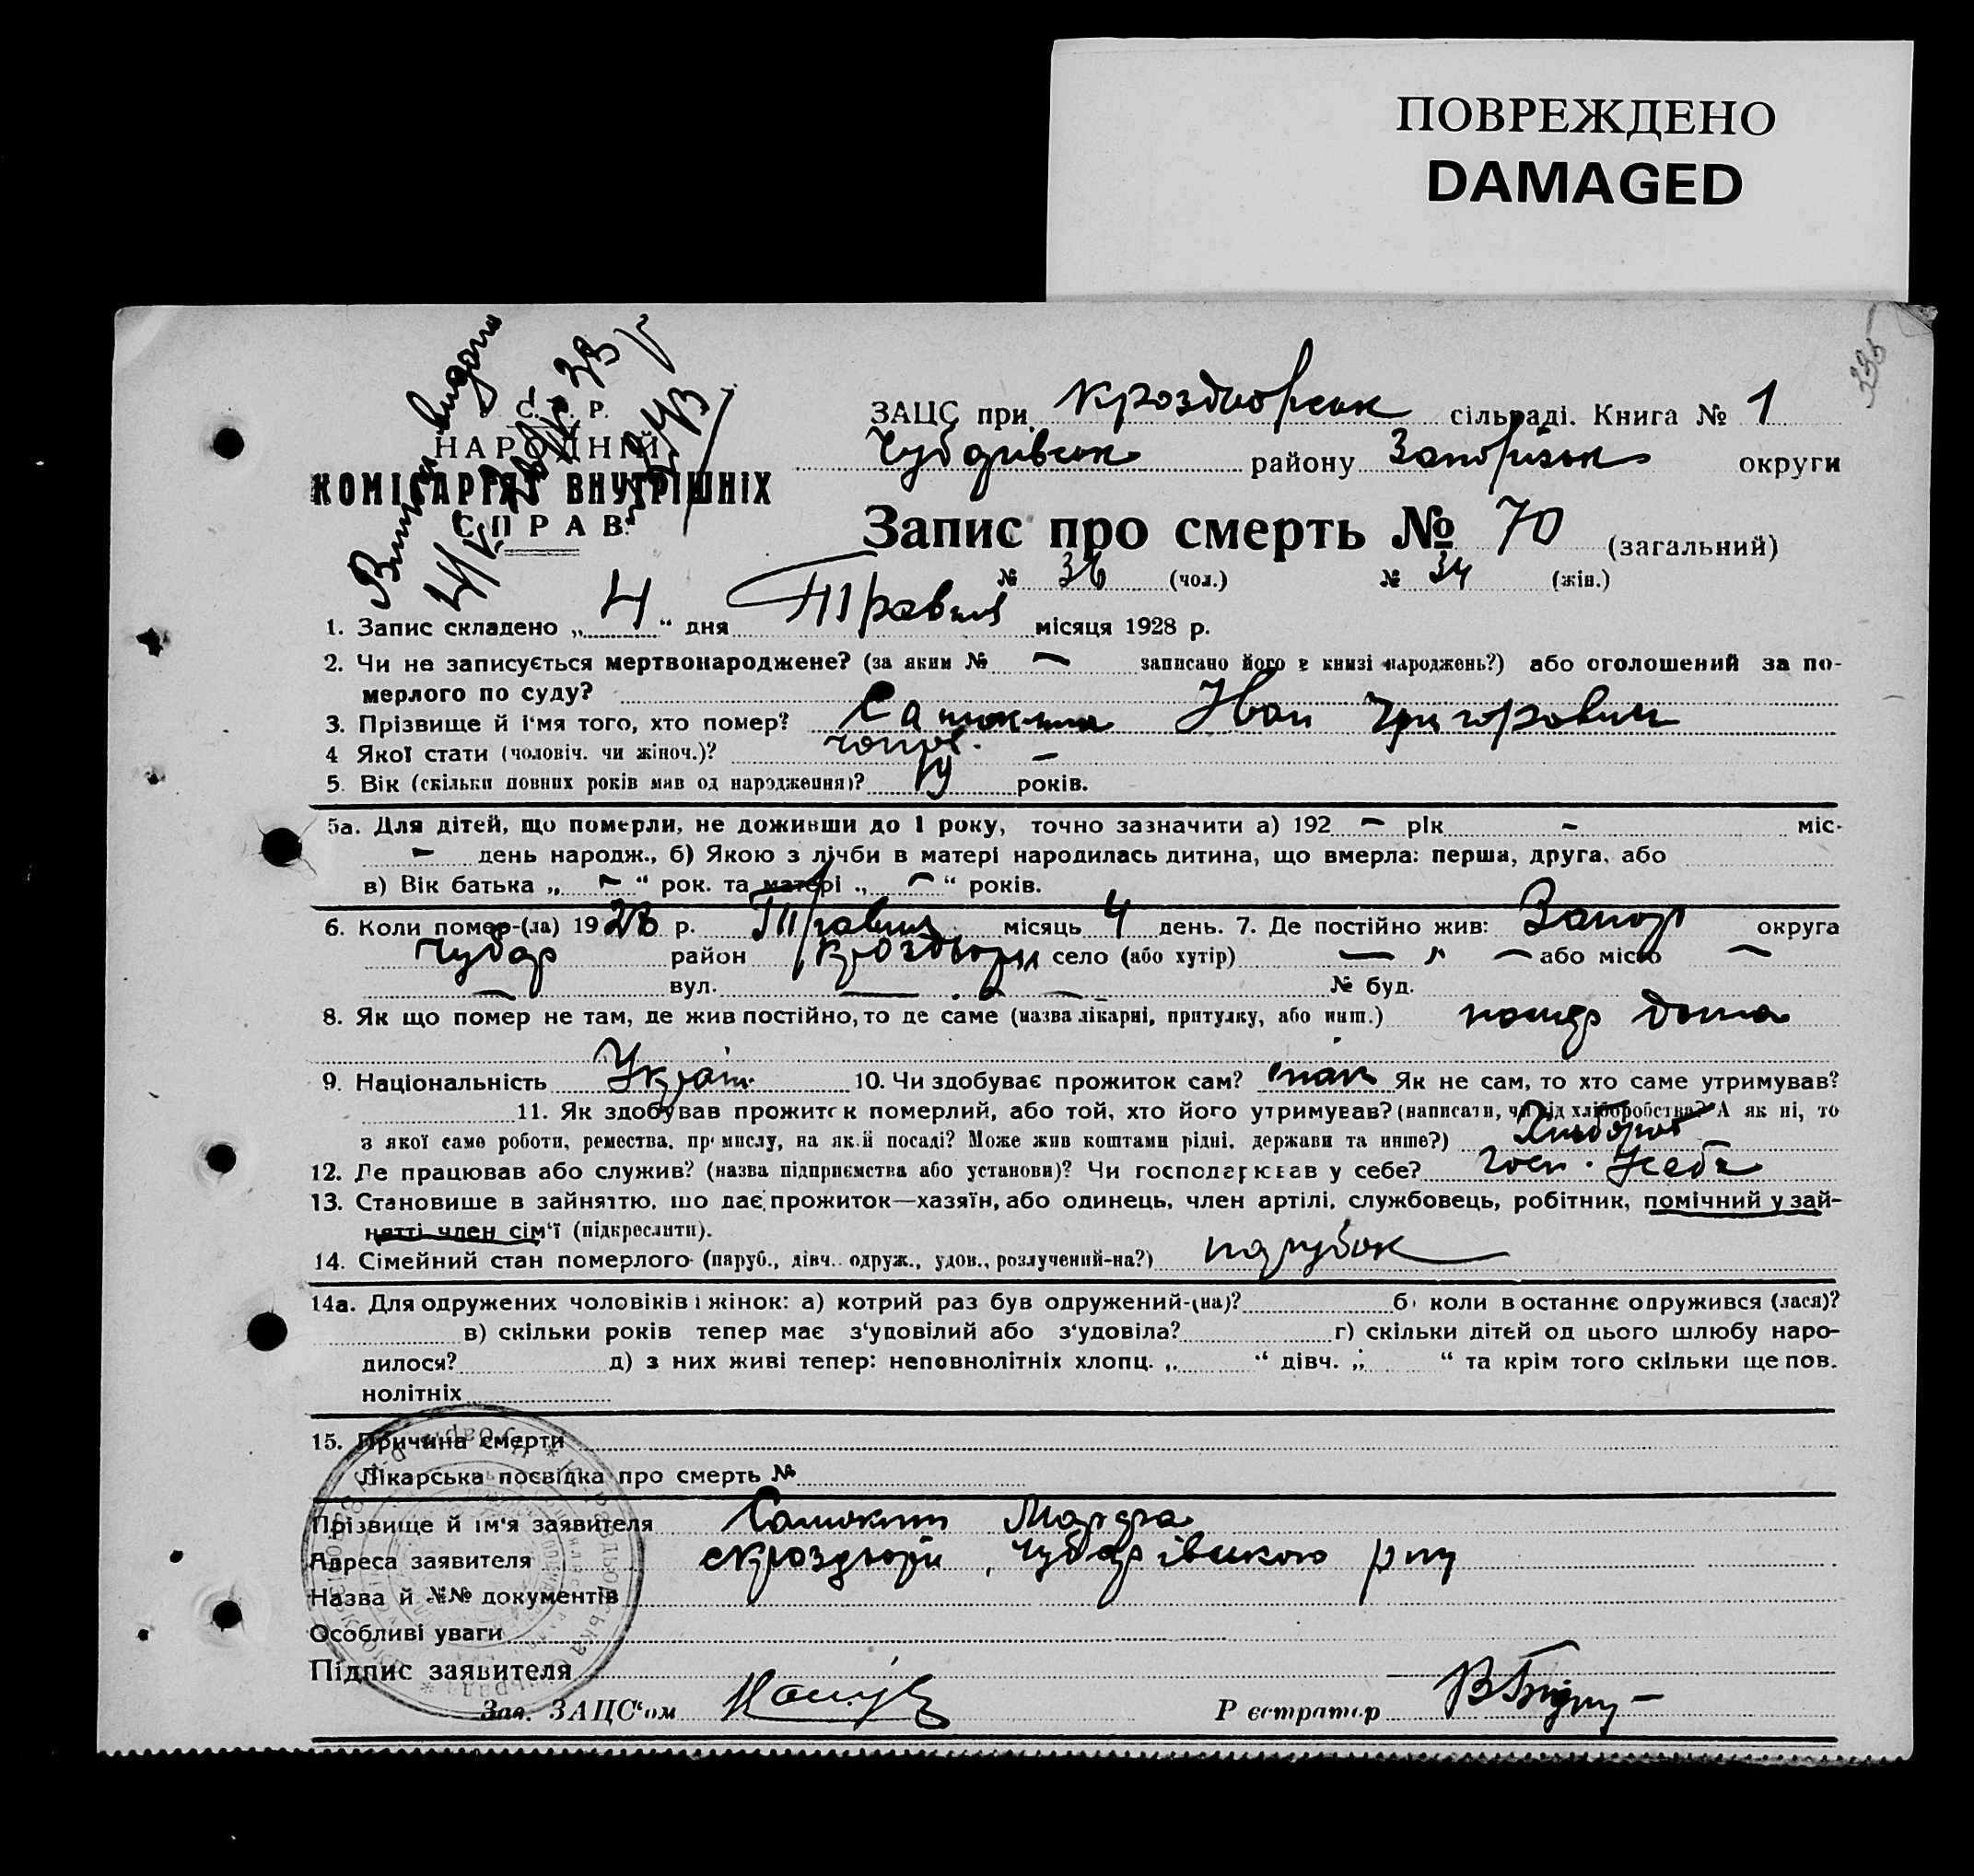 ПОВРЕЖДЕНО
DAMAGED
335
С. Р.
НАРОДНИЙ
КОМІСАРІЯТ ВНУТРІШНІХ
СПРАВ
ЗАЦС при сільраді. Книга № 1
району округи
Запис про смерть № 70 (загальний)
№ 36 (чол.) № 34 (жін.)
1. Запис складено „ 4 “ дня Травня місяця 1928 р.
2. Чи не записується мертвонароджене? (за яким № — записано його в книзі народжень?) або оголошений за по-
мерлого по суду?
3. Прізвище й ім'я того, хто помер? Іван Григорович
4 Якої стати (чоловіч. чи жіноч.)? —
5. Вік (скільки повних років мав од народження)? років.
5а. Для дітей, що померли, не доживши до 1 року, точно зазначити а) 192 — рік — міс.
— день народж., б) Якою з лічби в матері народилась дитина, що вмерла: перша, друга, або
в) Вік батька „ — “ рок. та матері „ — “ років.
6. Коли помер-(ла) 1928 р. Травня місяць 4 день. 7. Де постійно жив: Запор округа
Чубар район село (або хутір) — — або місто —
— вул. — № буд.
8. Як що помер не там, де жив постійно, то де саме (назва лікарні, притулку, або инш.) помер дома
9. Національність Україн. 10. Чи здобуває прожиток сам? так Як не сам, то хто саме утримував?
11. Як здобував прожиток померлий, або той, хто його утримував? (написати, чи від хліборобства? А як ні, то
з якої само роботи, ремества, промислу, на якій посаді? Може жив коштами рідні, держави та инше?) Хлібороб
12. Де працював або служив? (назва підприємства або установи)? Чи господарював у себе? госп. у себе
13. Становише в зайняттю, що дає прожиток—хазяїн, або одинець, член артілі, службовець, робітник, помічний у зай-
нятті член сім'ї (підкреслити).
14. Сімейний стан померлого (паруб., дівч. одруж., удов., розлучений-на?) парубок
14а. Для одружених чоловіків і жінок: а) котрий раз був одружений-(на)? б) коли в останнє одружився (лася)?
в) скільки років тепер має з'удовілий або з'удовіла? г) скільки дітей од цього шлюбу наро-
дилося? д) з них живі тепер: неповнолітніх хлопц. „ “ дівч. „ “ та крім того скільки ще пов.
нолітніх
15. Причина смерти
Лікарська посвідка про смерть №
Прізвище й ім'я заявителя
Адреса заявителя
Назва й №№ документів
Особливі уваги
Підпис заявителя
Зав. ЗАЦС'ом Реєстратор